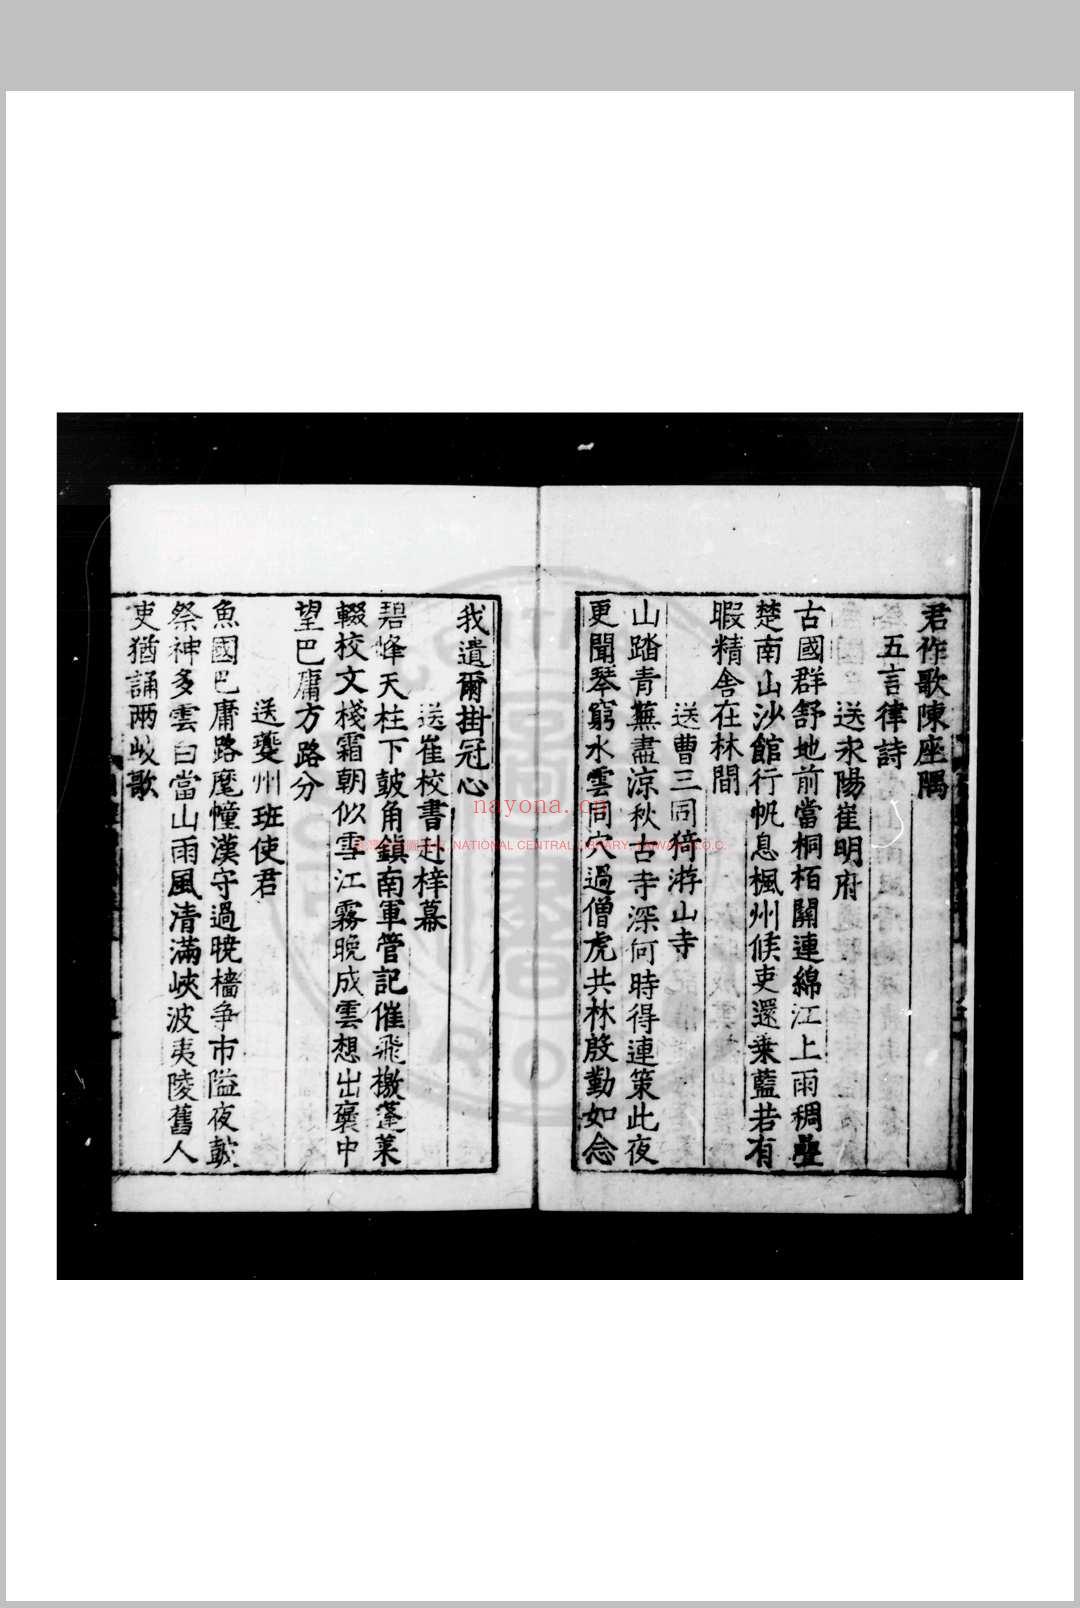 君作歌陳座隅
五言律詩
送永陽崔明府
古國群舒地前當桐栢關連綿江上雨稠疊
楚南山沙館行帆息楓州候吏還乗藍若有
暇精舎在林間
送曹三同猗游山寺
山踏青蕪盡涼秋古寺深何時得連策此夜
更聞琴窮水雲同穴過僧虎共林殷勤如念
我遺爾掛冠心
送崔校書赴梓幕
碧峰天柱下鼓角鎮南軍管記催飛檄蓬萊
輟校文棧霜朝似雪江霧晚成雲想出褒中
望巴庸方路分
送夔州班使君
魚國巴庸路麾幢漢守過曉檣争市隘夜鼓
祭神多雲白當山雨風清滿峽波夷陵舊人
吏猶誦兩岐歌
nayona.cn
NATIONAL CENTRAL LIBRARY, TAIWAN, R.O.C.